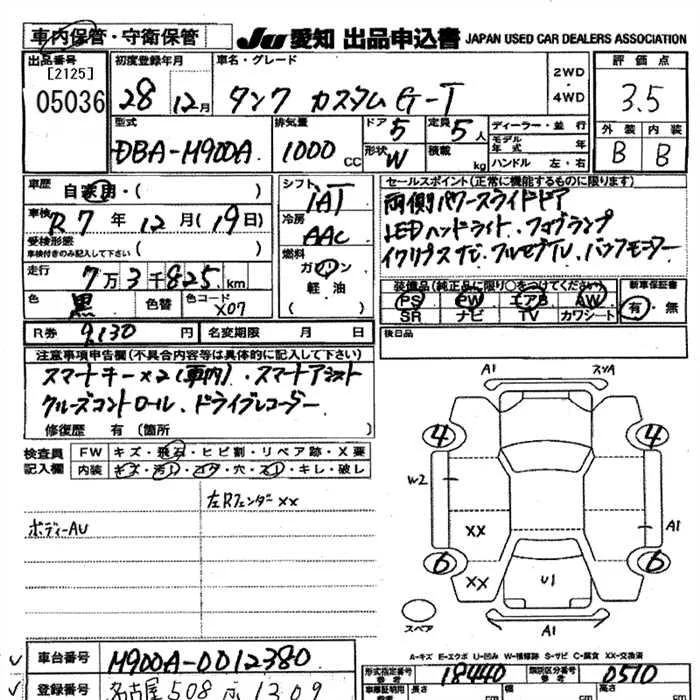 車内保管・守衛保管
JU 愛知 出品申込書 JAPAN USED CAR DEALERS ASSOCIATION
出品番号 [2125] 05036
初度登録年月 28 12月
車名・グレード タンク カスタムG-T
2WD・4WD
評価点 3.5
外装 B 内装 B
型式 DBA-M900A
排気量 1000 CC
ドア 5 形状 W
定員 5人 積載 kg
ディーラー・並行
モデル年式 年
ハンドル 左・右
車歴 自家用・( )
車検 R7年12月(19日)
受検形態 車検付きのみ記入して下さい ( )
走行 7万3千825km
色 黒 色替 色コード X07
シフト IAT
冷房 AAC
燃料 ガソリン 軽油
セールスポイント(正常に機能するものに限ります)
両側パワースライドドア
LEDヘッドライト、フォグランプ
イクリプスナビ、フルセグTV、バックモニター
装備品(純正品に限り○をつけてください)
PS PW エアB AW
SR ナビ TV カワシート
新車保証書 有・無
後日品
R券 9,130円 名変期限 月 日
注意事項申告欄(不具合内容等は具体的に記入して下さい)
スマートキー×2(車内)、スマートアシスト
クルーズコントロール、ドライブレコーダー
修復歴 有(箇所 )
検査員記入欄
FW キズ・飛石・ヒビ割・リペア跡・X要
内装 キズ・汚れ・コゲ・穴・スレ・キレ・破レ
左Rフェンダーxx
ボディーAU
A1 スソA
4 4
W2
xx A1
6 6
xx U1
スペア A1
A-キズ E-エクボ U-凹み W-補修跡 S-サビ C-腐食 XX-交換済
車台番号 M900A-0012380
登録番号 名古屋508 1309
形式指定番号 参考 18440
類別区分番号 参考 0510
車庫証明用 長さ cm 幅 cm 高さ cm